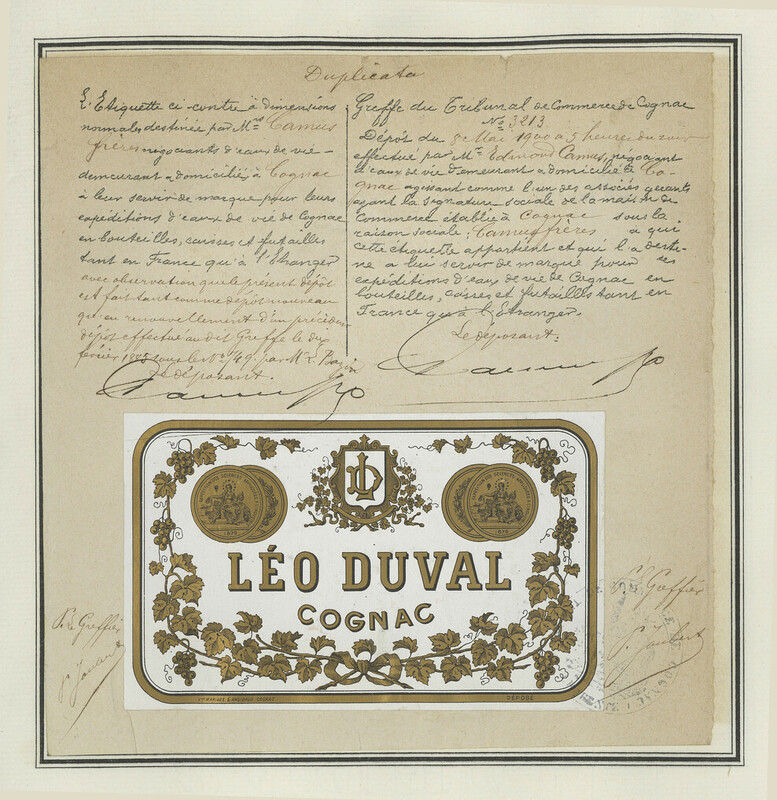 Duplicata
L'Etiquette ci contre à dimensions
normales destinée par Mrs Camus
frères négociants d'eaux de vie
demeurant & domiciliés à Cognac
à leur servir de marque pour leurs
expéditions d'eaux de vie de Cognac
en bouteilles, caisses et futailles
tant en France qu'à l'Etranger
avec observation que le présent dépôt
est fait tant comme dépôt nouveau
qu'en renouvellement d'un précédent
dépôt effectué au dit Greffe le dix
février 1885 sous le No 749 par Mr
Le déposant.
Greffe du Tribunal de Commerce de Cognac
No 3213
Dépôt du 8 Mai 1900 à 5 heures du soir
effectué par Mr Edmond Camus, négociant
d'eaux de vie demeurant & domicilié à Co-
gnac agissant comme l'un des associés gérants
ayant la signature sociale de la maison de
Commerce établie à Cognac sous la
raison sociale; Camus frères à qui
cette étiquette appartient et qui l'a desti-
né à lui servir de marque pour ses
expéditions d'eaux de vie de Cognac en
bouteilles, caisses et futailles tant en
France qu'à l'Etranger.
Le déposant:
LD
1875
1875
LÉO DUVAL
COGNAC
DÉPOSÉ
P. le Greffier
P. le Greffier